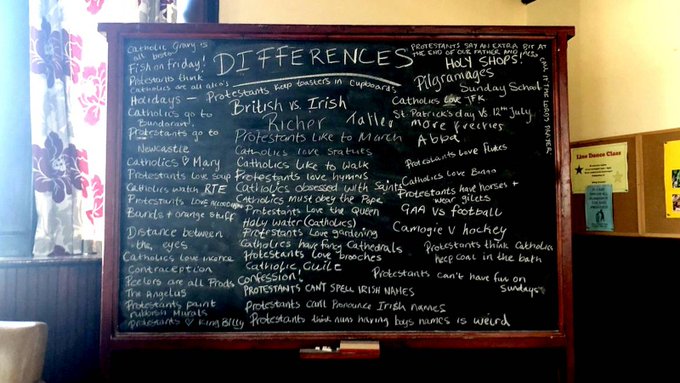 DIFFERENCES
Catholic Gravy is
all bisto
Fish on Friday!
Protestants think
Catholics are all alco's
Holidays -
Catholics go to
Bundoran.
Protestants go to
Newcastle
Catholics ♡ Mary
Protestants love soup
Catholics watch RTE
Protestants love
Bands + orange stuff
Distance between
the eyes
Catholics love incence
contraception
Peelers are all Prods
The Angelus
Protestants paint
rubbish Murals
Protestants ♡ King Billy
Protestants keep toasters in cupboards
British vs. Irish
Richer
Taller
Protestants like to March
Catholics love Statues
Catholics like to walk
Protestants love hymns
Catholics obsessed with saints
Catholics must obey the Pope
Protestants love the Queen
Holy water (Catholics)
Protestants love gardening
Catholics have fancy Cathedrals
Protestants love brooches
Catholic Guilt
Confession!
PROTESTANTS CAN'T SPELL IRISH NAMES
Protestants can't Pronounce Irish names
Protestants think nuns having boys names is weird
PROTESTANTS SAY AN EXTRA BIT AT
THE END OF OUR FATHER AND
CALL IT THE LORD'S PRAYER
HOLY SHOPS!
Pilgramages
Sunday School
Catholics love JFK
St. Patrick's day VS 12th July
more freckles
Abba
Protestants love Flutes
Catholics love Bingo
Protestants have horses +
wear gilets
GAA vs football
Camogie v hockey
Protestants think Catholics
keep coal in the bath
Protestants can't have fun on
Sundays
Line Dance Class